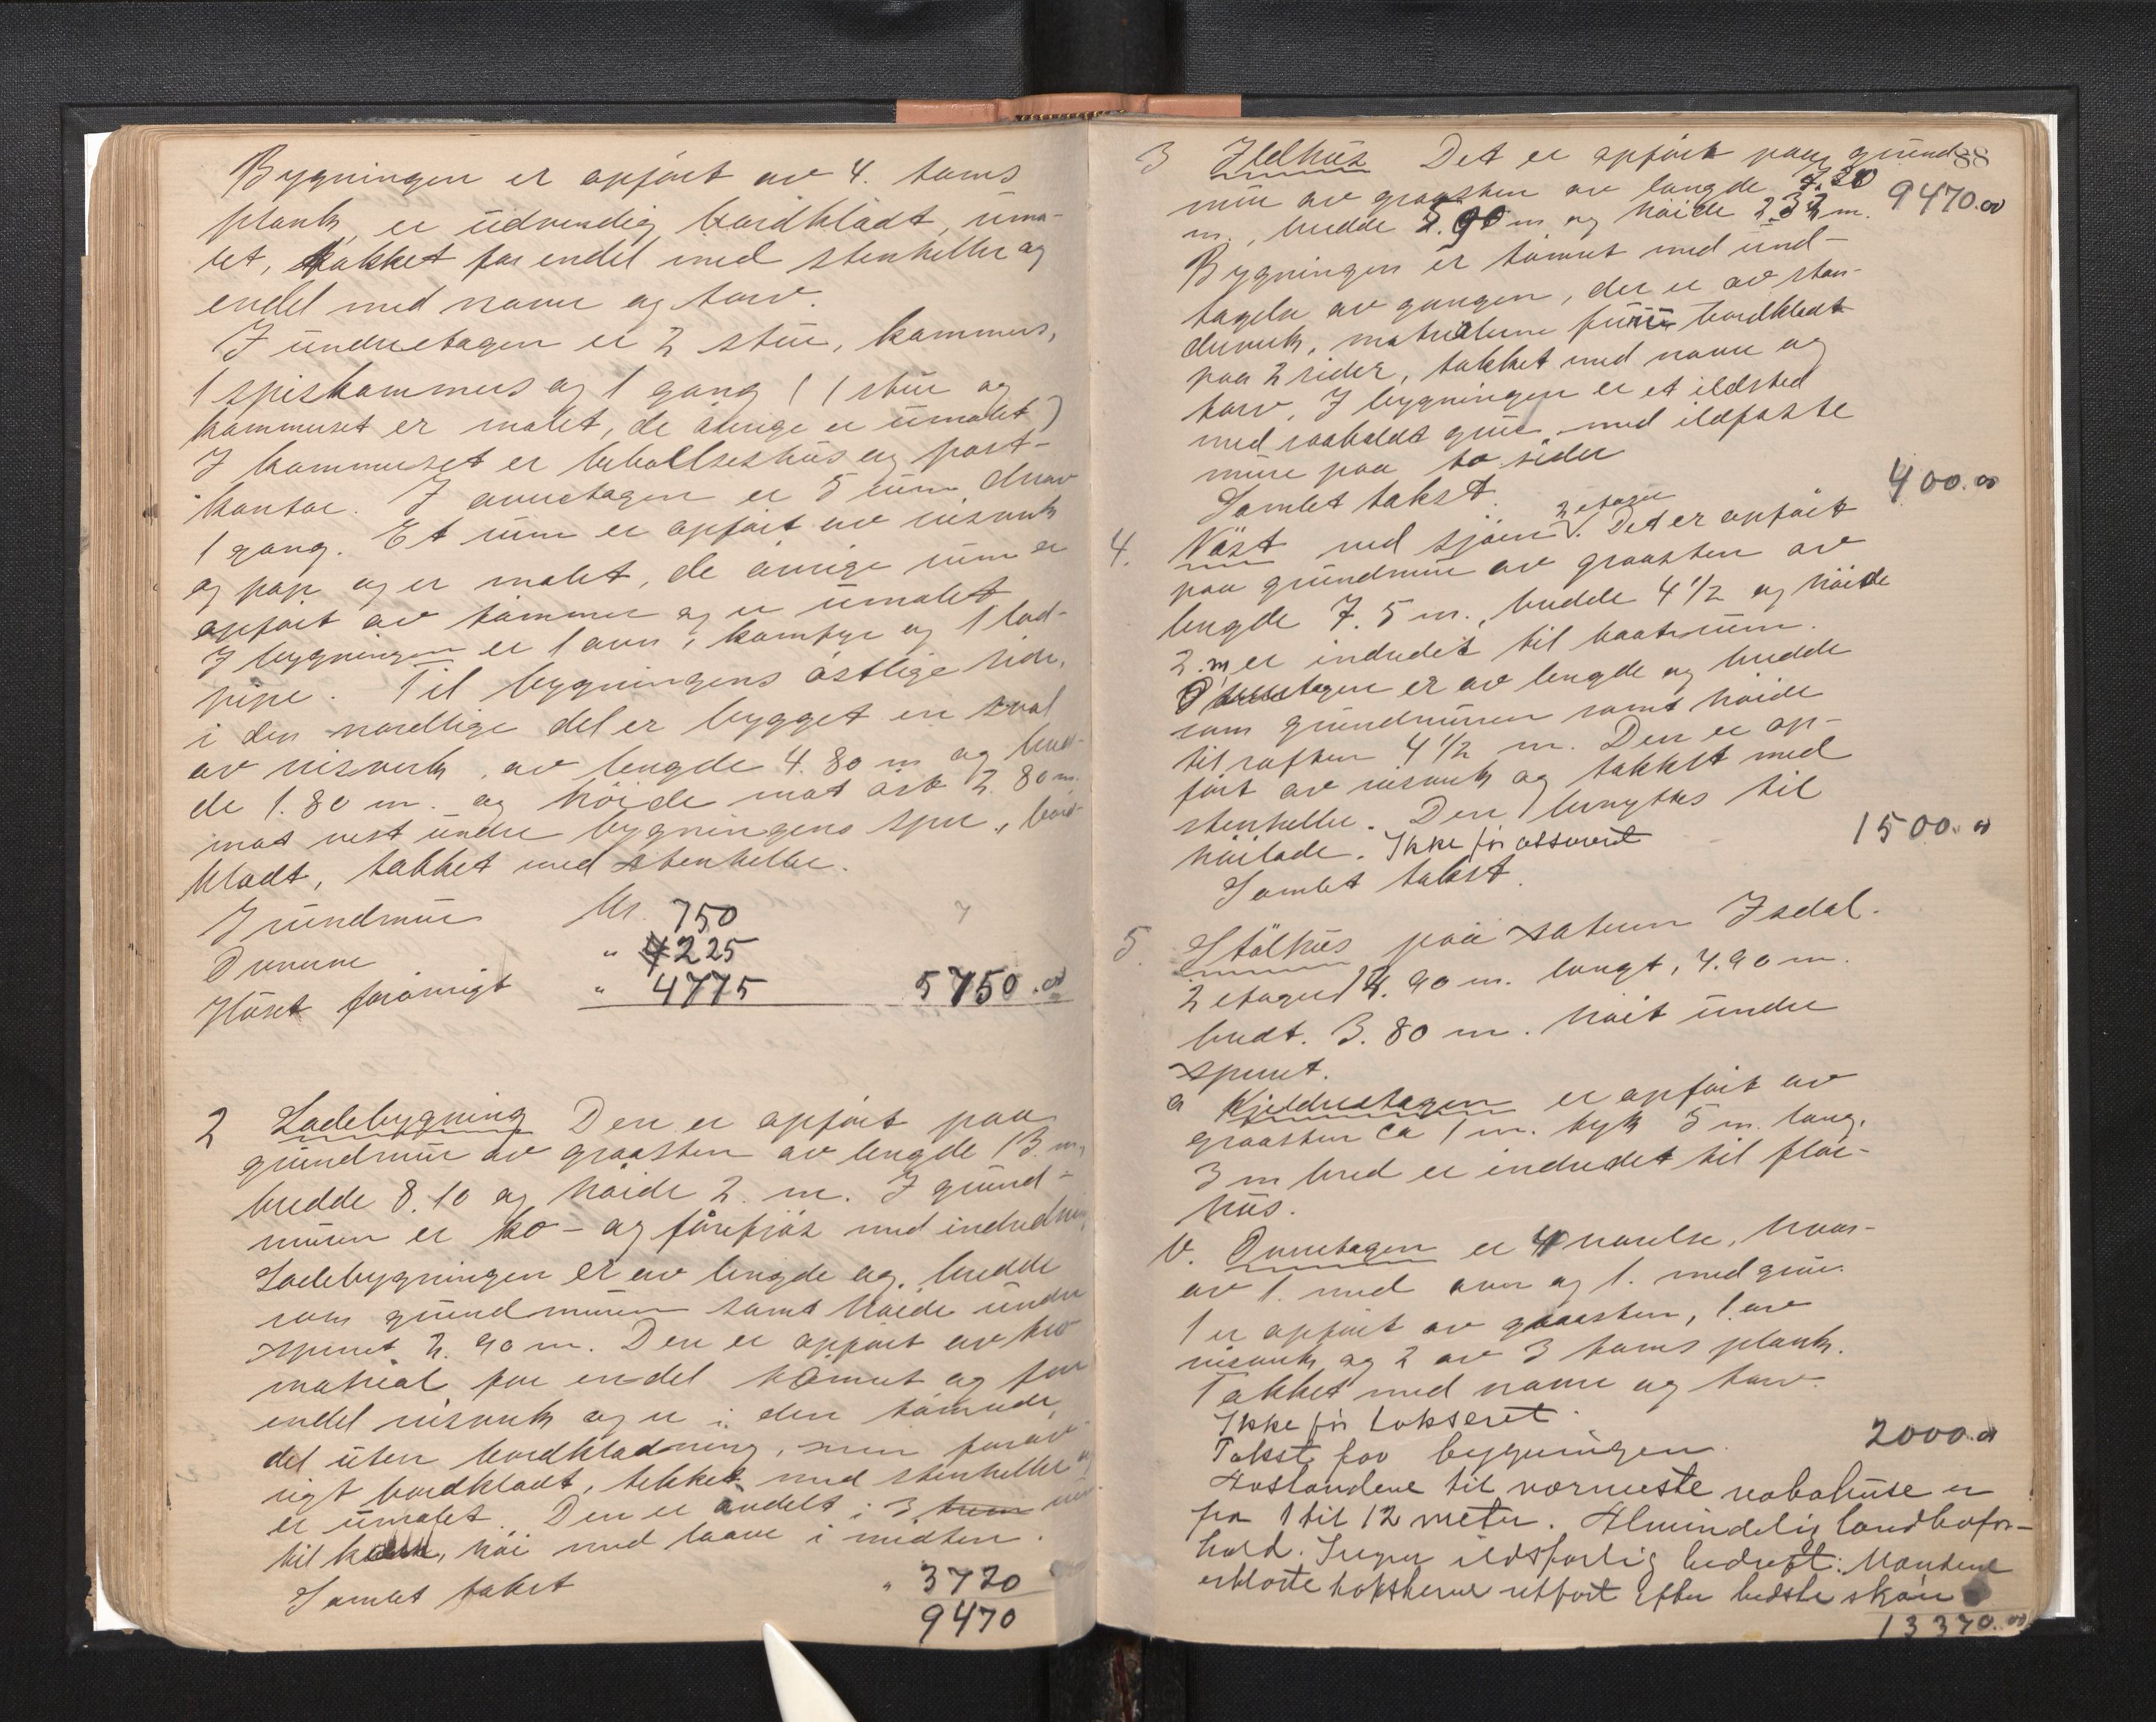 Bygningen er opført av 4. toms
plank, er udvendig bordklädt, uma-
let, täkket for endel med stenheller og
endel med næver og torv.
I underetagen er 2 stuer, kammers,
1 spiskammers og 1 gang (1 stue og
kammerset er malet, de øvrige er umalet)
I kammerset er post-
kontor. I øvreetagen er 5 rum derav
1 gang. Et rum er opført av reisverk
og pap og er malet, de øvrige rum er
opført av tømmer og er umalet
I bygningen er 1 ovn, komfyr og 1 lod-
pipe. Til bygningens østlige side,
i den nordlige del er bygget en sval
av reisverk, av lengde 4.80 m og bred-
de 1.80 m. og høide mot øst 2.80 m.
mot vest under bygningens sper, bord-
klädt, täkket med stenheller.
Grundmur Kr. 750
Ovnene " 225
Huset forøvrigt " 4775 5750.00
2 Ladebygning Den er opført paa
grundmur av graasten av lengde 13. m,
bredde 8.10 og høide 2. m. I grund-
muren er ko- og fårefjøs med indredning
Ladebygningen er av lengde og bredde
som grundmuren samt høide under
sperret 2.90 m. Den er opført av
material for endel tømret og for
endel reisverk og er i den tømrede
del uten bordklädning, men forøv-
rigt bordklädt, täkket med stenheller og
er umalet. Den er andelt i 3 rum
til korn, høi med laave i midten.
Samlet takst " 3720
9470
88
3 Ildhus Det er opført paa grund-
mur av graasten av lengde 7.20 9470.00
m., bredde 5.90 m og høide 2.32 m.
Bygningen er tømret med und-
tagelse av gangen, der er av stan-
derverk, materialerne furu bordklädt
paa 2 sider, täkket med næver og
torv. I bygningen er et ildsted
med grue med ildfaste
mure paa to sider
Samlet takst. 400.00
4. Nöst ved sjøen 2 etager. Det er opført
paa grundmur av graasten av
lengde 7.5 m., bredde 4 1/2 og høide
2. m er indredet til baatrum.
Øvreetagen er av lengde og bredde
som grundmuren samt høide
til raften 4 1/2 m. Den er op-
ført av reisverk og täkket med
stenheller. Den benyttes til
høilade. Ikke før assurert
Samlet takst. 1500.00
5. Stölhus paa säteren Isdal.
2 etager 4.90 m. langt, 4.90 m.
bredt. 3.80 m. høit under
sperret.
a Kjelderetagen er opført av
graasten ca 1 m. tyk 5 m. lang,
3 m bred er indredet til flor-
hus.
b. Øvreetagen er 4 værelse, hvor-
av 1. med ovn og 1. med grue.
1 er opført av graasten, 1 av
reisverk og 2 av 3 toms plank.
Täkket med næver og torv.
Ikke før takseret.
Takst for bygningen. 2000.00
Avstandene til nærmeste nabohuse er
fra 1 til 12 meter. Almindelig landbofor-
hold. Ingen ildsfarlig bedrift. Mændene
erklærte taksterne utført efter bedste skjøn
13370.00